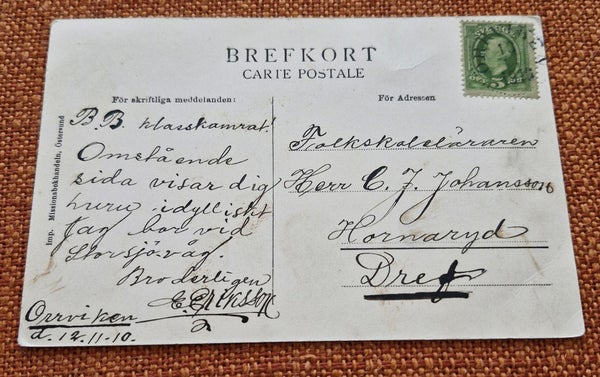 BREFKORT
CARTE POSTALE
För skriftliga meddelanden:
För Adressen
Imp. Missionsbokhandeln, Östersund
B.B. klasskamrat!
Omstående
sida visar dig
huru idylliskt
jag bor vid
Storsjö-våg.
Broderligen
E. Eriksson
Orrviken
d. 12.11-10.
Folkskoleläraren
Herr C. J. Johansson
Hornaryd
Dref
SVERIGE
5